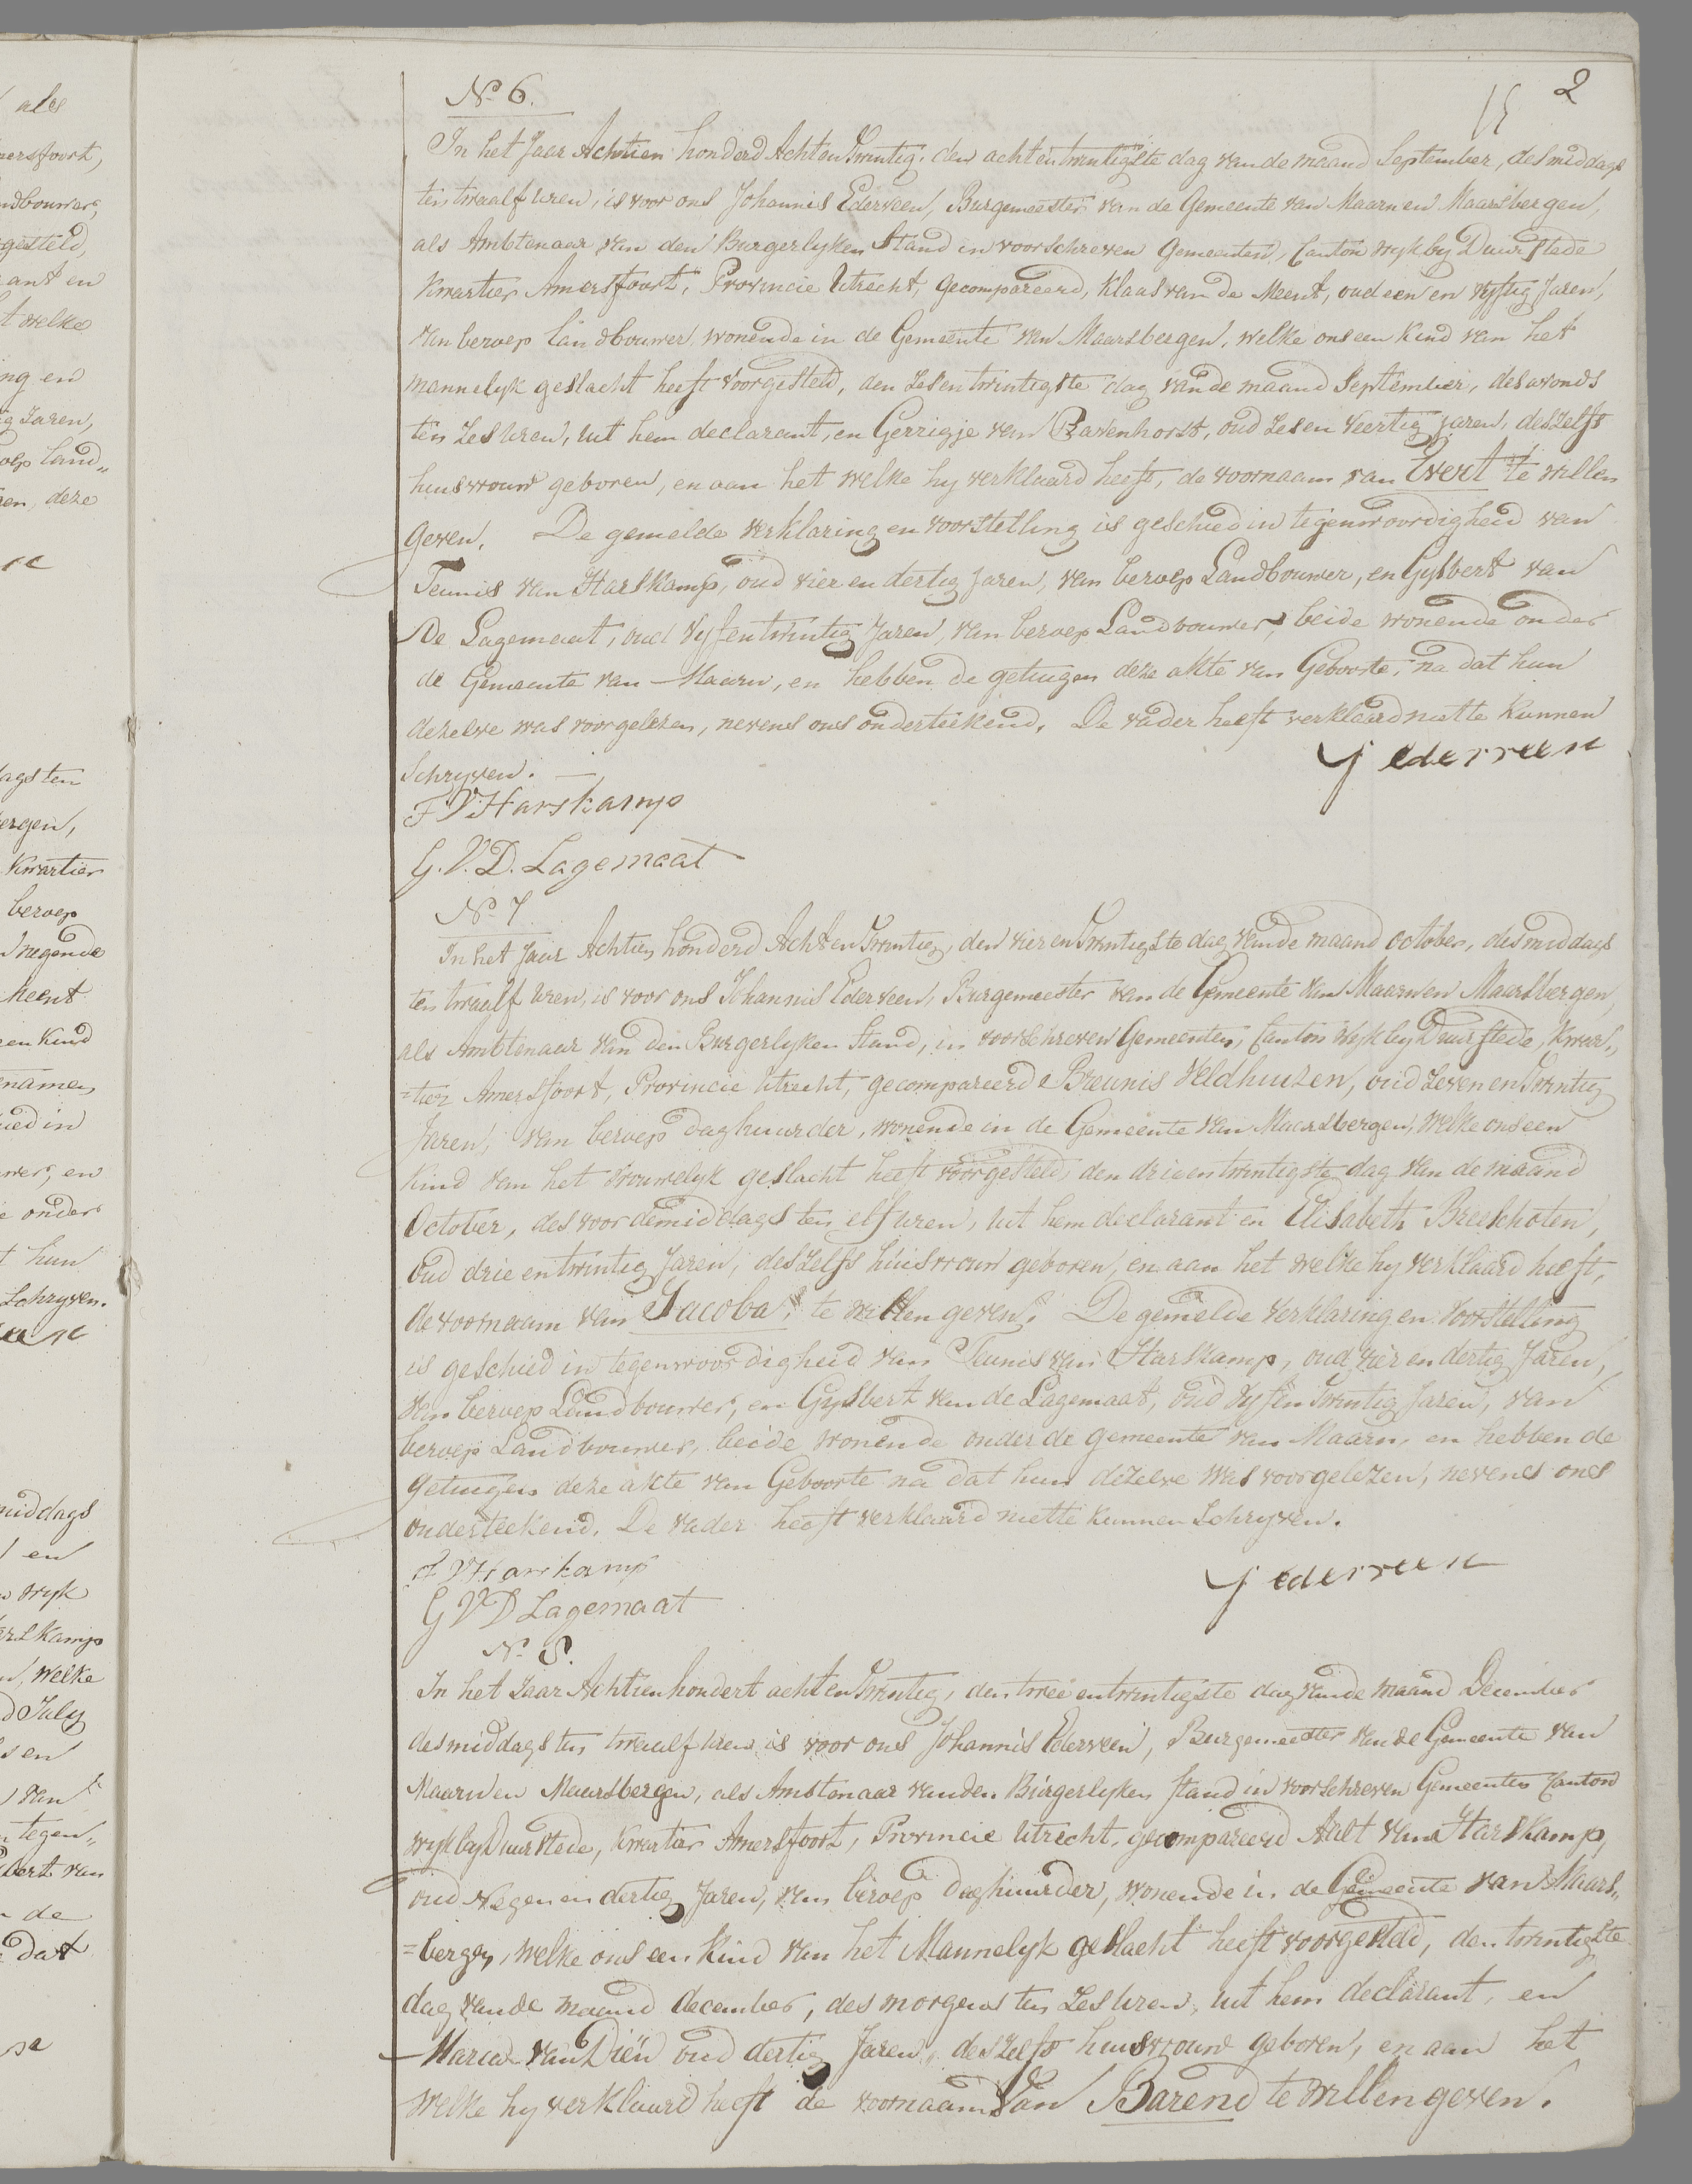 2
N<sup>o</sup> 6.
In het Jaar Achttien honderd Achten Twintig, den acht en twintigste dag van de maand September, des middags
ten twaalf uren, is voor ons Johannis Ederveen, Burgemeester van de Gemeente van Maarn en Maarsbergen,
als Ambtenaar van den Burgerlyken Stand in voorschreven Gemeenten, Canton wyk by Duurstede
Kwartier Amersfoort, Provincie Utrecht, gecompareerd, Klaas van de Meent, oud een en vyftig Jaren,
van beroep landbouwer, wonende in de Gemeente van Maarsbergen, welke ons een Kind van het
mannelyk geslacht heeft voorgesteld, den zes en twintigste dag van de maand September, des avonds
ten zes uren, uit hem declarant, en Gerrigje van Ravenhorst, oud zes en veertig jaren, deszelfs
huisvrouw geboren, en aan het welke hy verklaard heeft, de voornaam van Evert te willen
geven. De gemelde verklaring en voorstelling is geschied in tegenwoordigheid van
Teunis van Harskamp, oud vier en dertig Jaren, van beroep Landbouwer, en Gysbert van
De Lagemaat, oud vyf en twintig Jaren, van beroep Landbouwer, beide wonende onder
de Gemeente van Maarn, en hebben de getuigen deze akte van Geboorte, na dat hun
dezelve was voorgelezen, nevens ons onderteekend. De vader heeft verklaard niet te kunnen
Schryven.
J Ederveen
T V Harskamp
G. V. D. Lagemaat
N<sup>o</sup> 7
In het Jaar Achtien honderd Acht en Twintig, den vier en Twintigste dag van de maand October, des middags
ten twaalf uren, is voor ons Johannis Ederveen, Burgemeester van de Gemeente van Maarn en Maarsbergen,
als Ambtenaar van den Burgerlyken Stand, in voorschreven Gemeenten, Canton Wyk by Duurstede, Kwar„
=tier Amersfoort, Provincie Utrecht, gecompareerd Breunis Veldhuizen, oud zeven en Twintig
Jaren, van beroep daghuurder, wonende in de Gemeente van Maarsbergen, welke ons een
Kind van het vrouwelyk geslacht heeft voorgesteld, den drie en twintigste dag van de maand
October, des voordemiddags ten elf uren, uit hem declarant en Elisabeth Breeschoten,
oud drie en twintig Jaren, deszelfs huisvrouw geboren, en aan het welke hy verklaard heeft,
de voornaam van Jacoba, te willen geven. De gemelde verklaring en voorstelling
is geschied in tegenwoordigheid van Teunis van Harskamp, oud vier en dertig Jaren,
van beroep Landbouwer, en Gysbert van de Lagemaat, oud vyf en Twintig Jaren, van
beroep Landbouwer, beide wonende onder de gemeente van Maarn, en hebben de
getuigen deze akte van Geboorte na dat hun dezelve was voorgelezen, nevens ons
onderteekend. De vader heeft verklaard niet te kunnen Schryven.
T V Harskamp
J Ederveen
G V D Lagemaat
N<sup>o</sup> 8.
In het Jaar Achtien hondert acht en Twintig, den twee en twintigste dag van de maand December
des middags ten twaalf uren is voor ons Johannis Ederveen, Burgemeester van de Gemeente van
Maarn en Maarsbergen, als Ambtenaar van den Burgerlyken Stand in voorschreven Gemeenten Canton
wyk by Duurstede, Kwartier Amersfoort, Provincie Utrecht, gecompareerd Aalt van Harskamp,
oud Negen en dertig Jaren, van beroep daghuurder, wonende in de Gemeente van Maars„
=bergen, welke ons een Kind van het Mannelyk geslacht heeft voorgesteld, den twintigste
dag van de maand december, des morgens ten zes uren, uit hem declarant, en
Maria van Diën oud dertig Jaren, deszelfs huisvrouw geboren, en aan het
welke hy verklaard heeft de voornaam van Barend te willen geven.